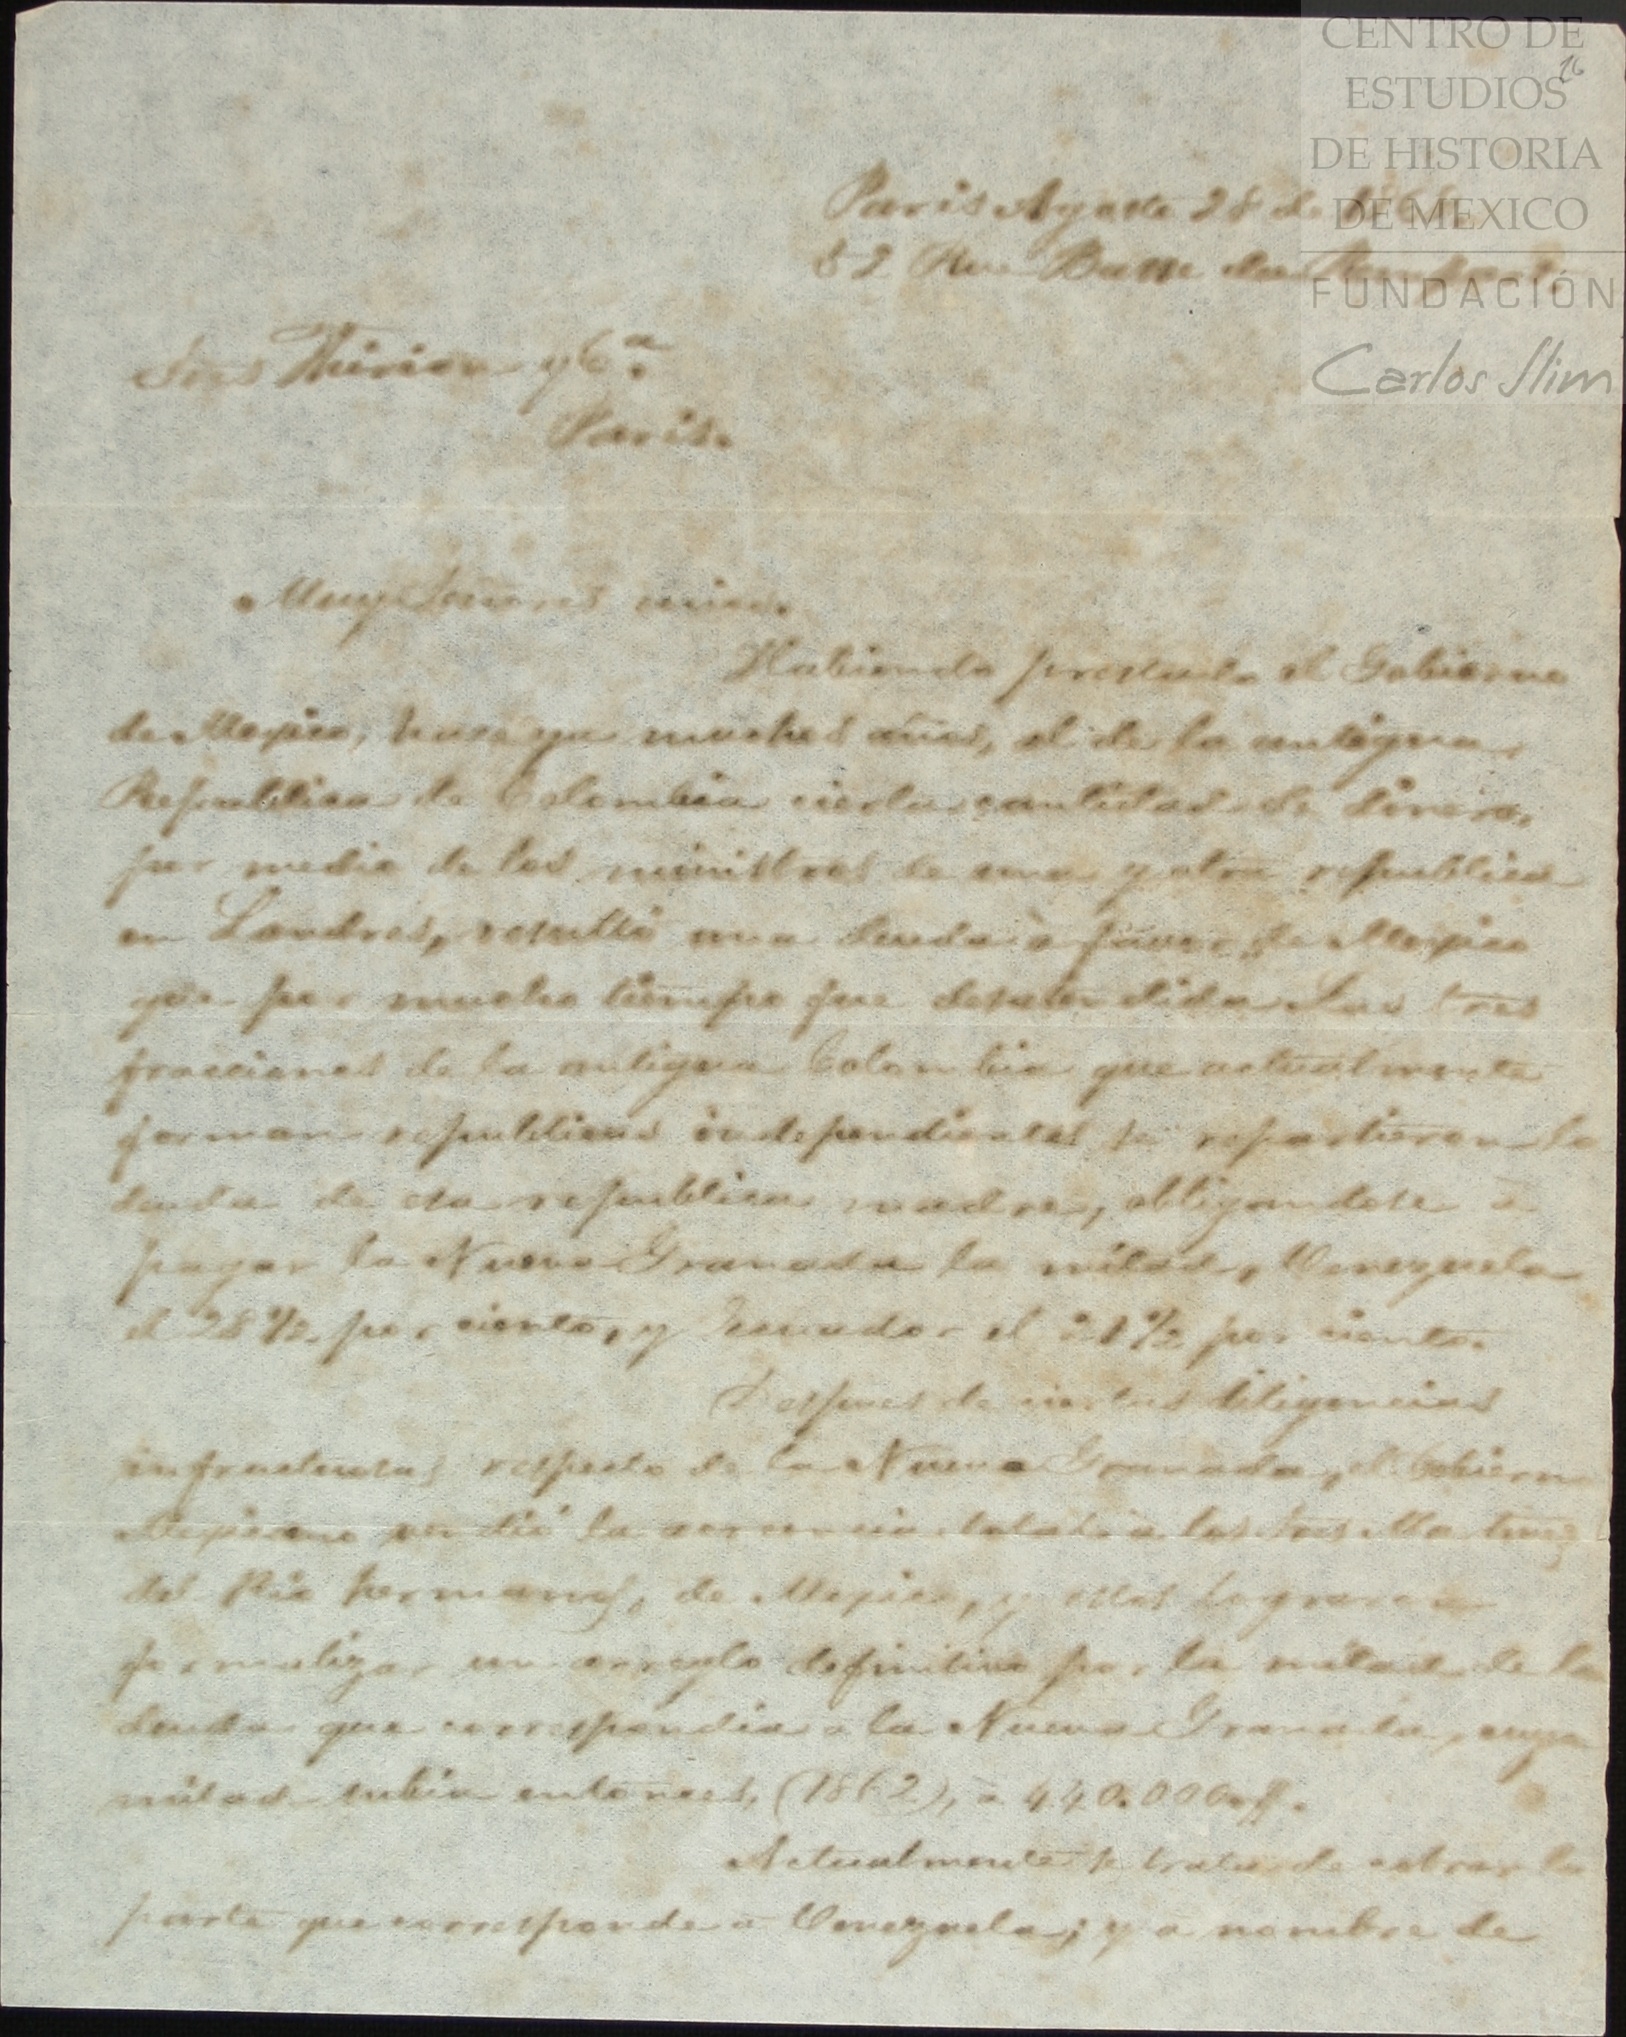 CENTRO DE
ESTUDIOS
DE HISTORIA
DE MEXICO
FUNDACIÓN
Carlos Slim
16
Paris Agosto 28 de 186
52 Rue Basse du Rempart
Sres Thirion y Cª.
Paris.
Muy Señores mios.
Habiendo prestado el Gobierno
de Mexico, hace ya muchos años, al de la antigua
Republica de Colombia cierta cantidad de dinero,
por medio de los ministros de una y otra republica
en Londres, resultó una deuda à favor de Mexico
que por mucho tiempo fue desatendida. Las tres
fracciones de la antigua Colombia que actualmente
forman republicas independientes se repartieron la
deuda de esa republica madre, obligandose à
pagar la Nueva Granada la mitad, Venezuela
el 28 ½ por ciento, y Ecuador el 21 ½ por ciento.
Despues de ciertas diligencias
infructuosas respecto de la Nueva Granada, el Gobierno
Mexicano vendió la acreencia total à los Sres Martinez
del Rio hermanos, de Mexico, y ellos lograron
formalizar un arreglo definitivo por la mitad de la
deuda que correspondia à la Nueva Granada, cuya
mitad subia entonces, (1862), à 440.000
Actualmente se trata de cobrar la
parte que corresponde à Venezuela; y a nombre de